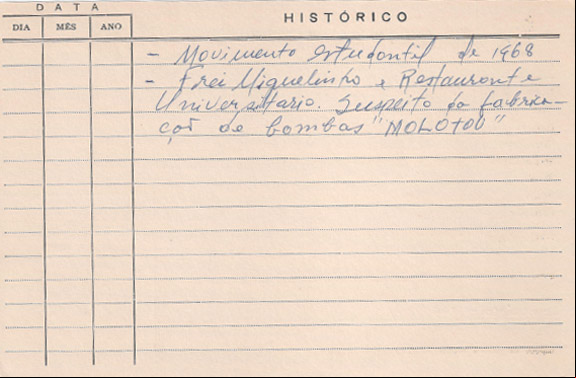 DATA
HISTÓRICO
DIA MÊS ANO
- Movimento estudantil de 1968
- Frei Miguelinho e Restaurante
Universitario. Suspeito da fabrica-
çaõ de bombas "MOLOTOV"